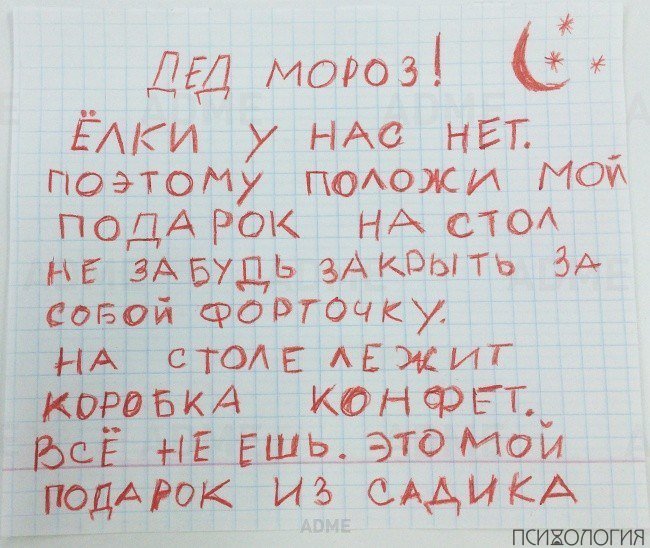 ДЕД МОРОЗ!
ЁЛКИ У НАС НЕТ.
ПОЭТОМУ ПОЛОЖИ МОЙ
ПОДАРОК НА СТОЛ
НЕ ЗАБУДЬ ЗАКРЫТЬ ЗА
СОБОЙ ФОРТОЧКУ.
НА СТОЛЕ ЛЕЖИТ
КОРОБКА КОНФЕТ.
ВСЁ НЕ ЕШЬ. ЭТО МОЙ
ПОДАРОК ИЗ САДИКА
ADME
ПСИХОЛОГИЯ